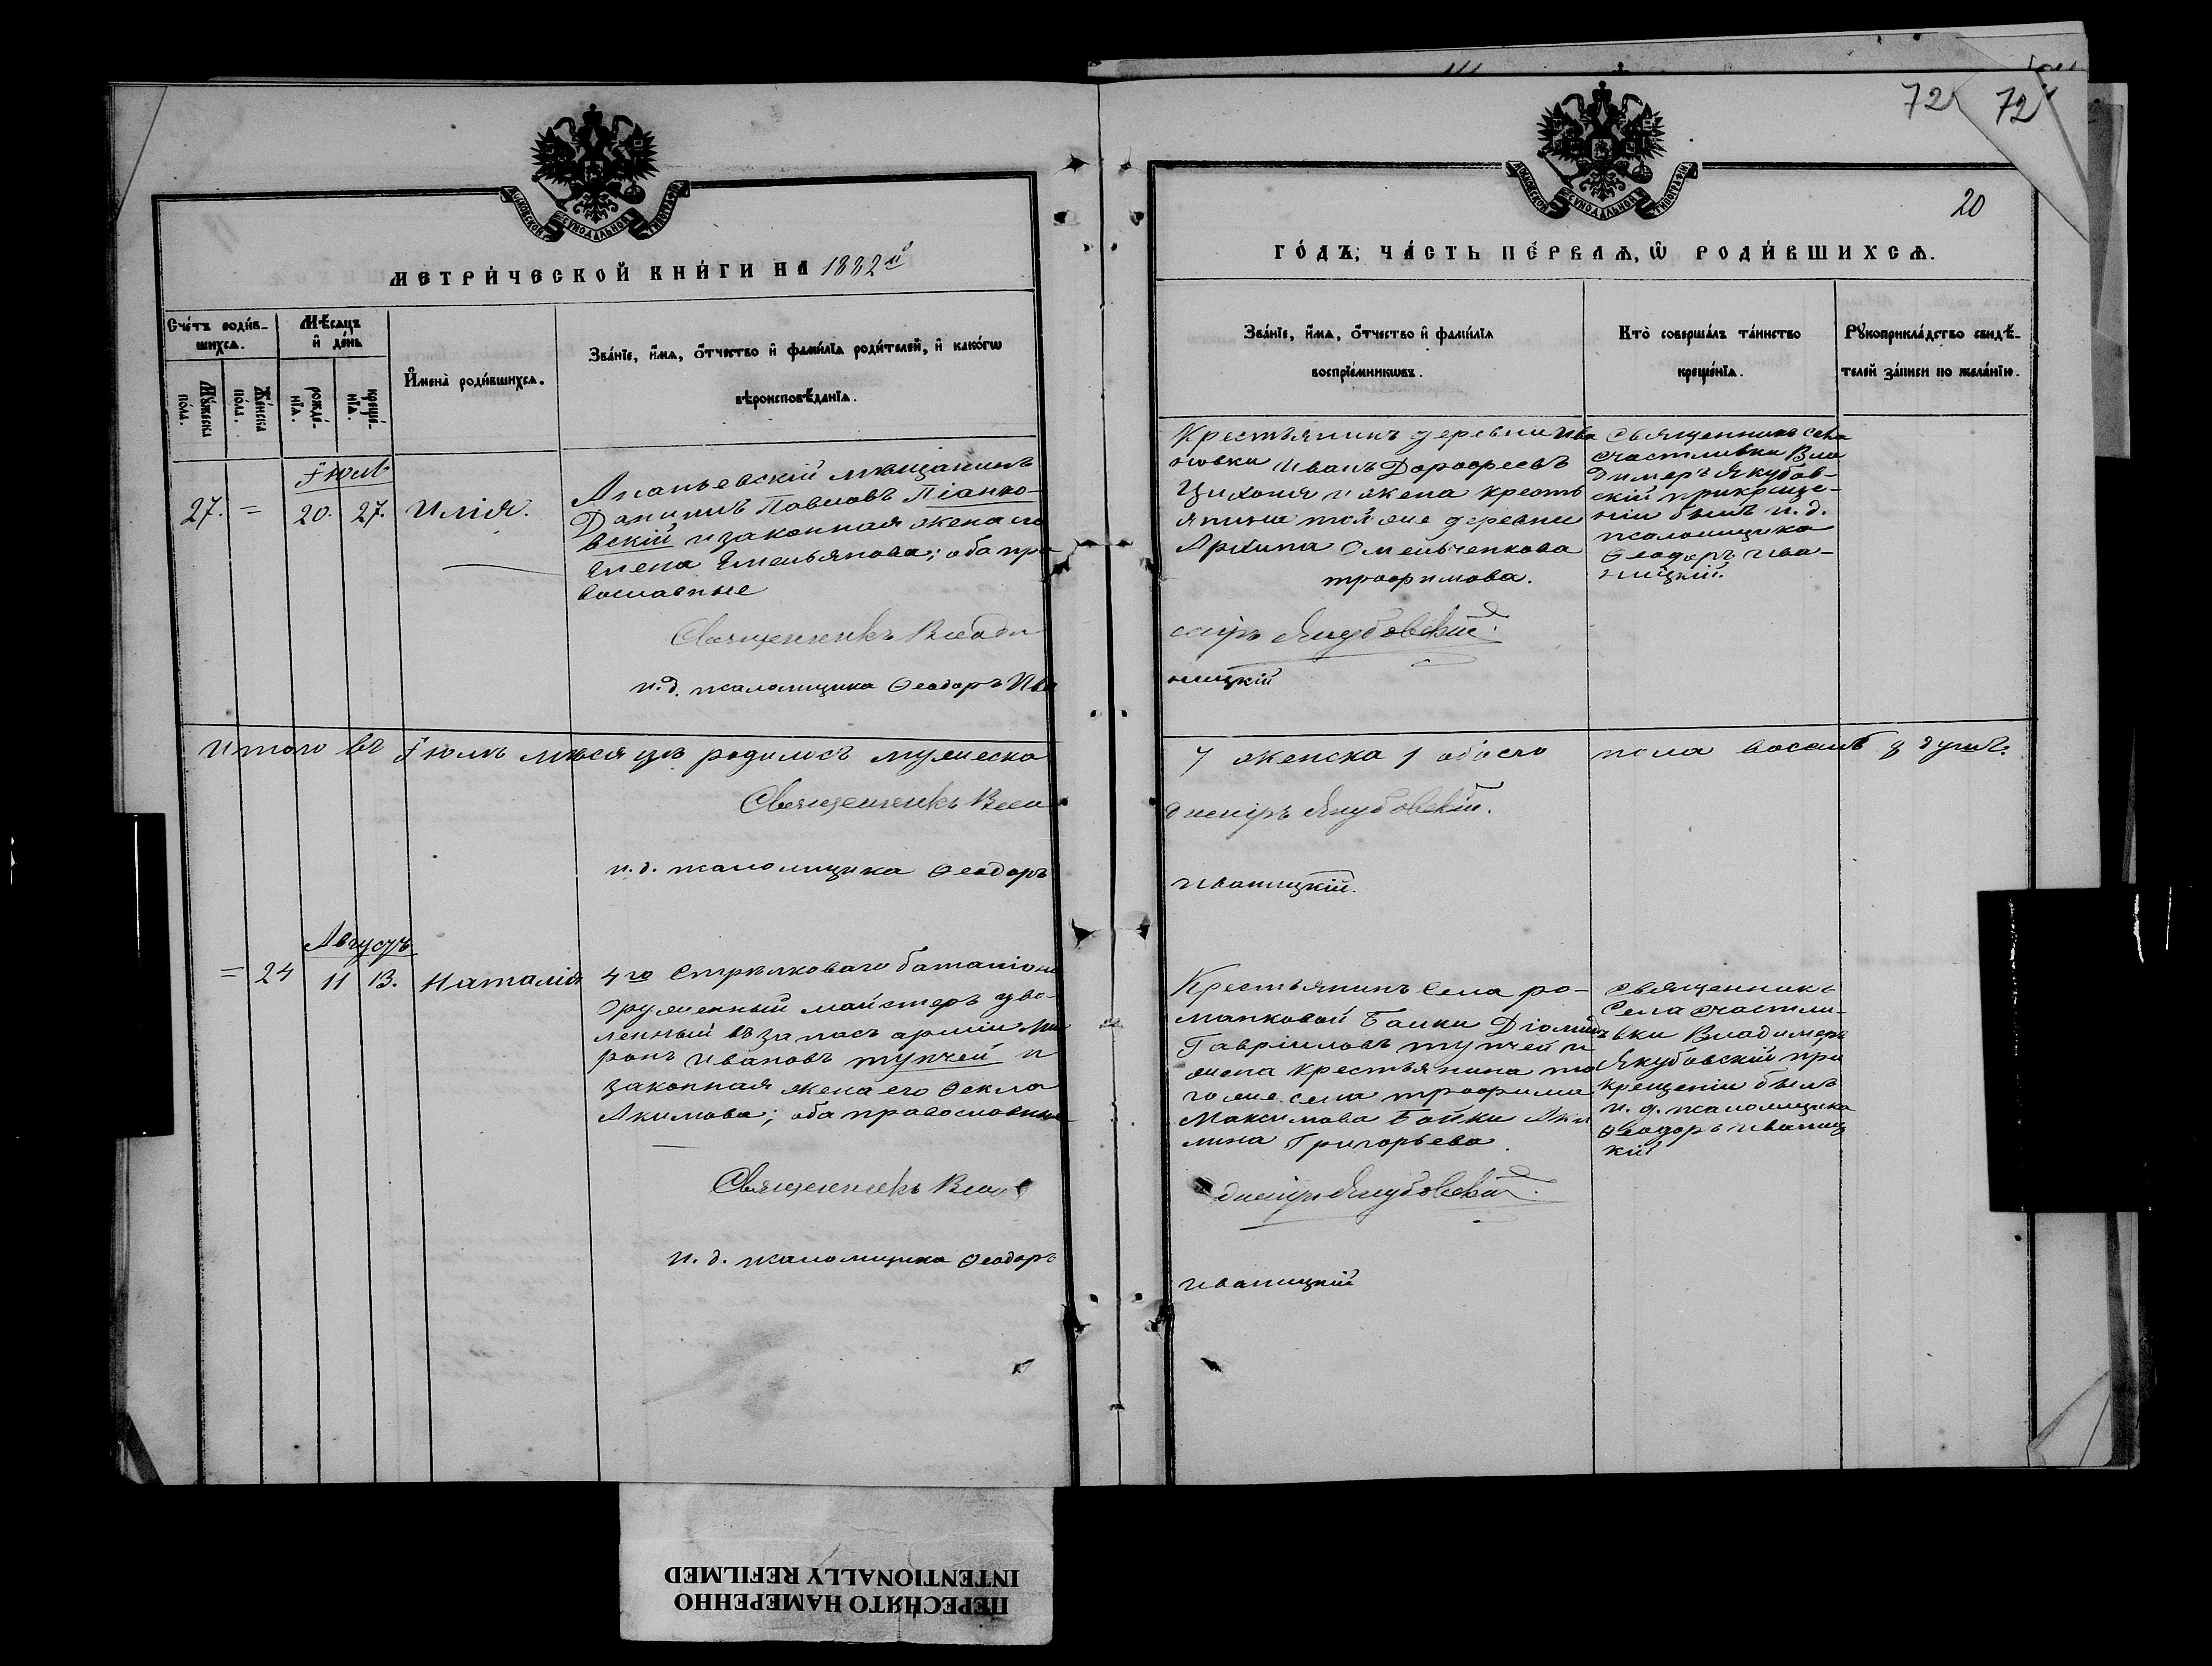 72
72
МОСКОВСКОЙ СѴНОДАЛЬНОЙ ТИПОГРАФІИ
МОСКОВСКОЙ СѴНОДАЛЬНОЙ ТИПОГРАФІИ
20
МЕТРИ́ЧЕСКОЙ КНИ́ГИ НА 1882й
ГО́ДЪ, ЧА́СТЬ ПЕ́РВАѦ, Ѡ҆ РОДИ́ВШИХСѦ.
Сче́тъ роди́в-
шихсѧ.
Мѣ́сѧцъ
и҆ де́нь
Мꙋ́жеска по́ла.
Же́нска по́ла.
рожде́-
нїѧ.
креще́-
нїѧ.
И҆мена̀ роди́вшихсѧ.
Зва́нїе, и҆́мѧ, ѻ҆́тчество и҆ фамі́лїѧ роди́телей, и҆ како́гѡ
вѣроисповѣ́данїѧ.
Зва́нїе, и҆́мѧ, ѻ҆́тчество и҆ фамі́лїѧ
воспрїе́мникѡвъ.
Кто̀ соверша́лъ та́инство
креще́нїѧ.
Рꙋкоприкла́дство свидѣ́-
телей за́писи по жела́нїю.
Іюль
27. = 20. 27. Илія.
Ананьевскій мѣщанинъ
Даниилъ Павловъ Піанко-
вскій и законная жена его
Елена Емельянова; оба пра
вославные
Крестьянинъ деревни Ива
новки Иванъ Дорофеевъ
Цихоня и жена кресть
янина той же деревни
Архипа Омельченкова
трофимова.
Священникъ села
Счастливки Вла
димеръ Якубов-
скій при креще-
ніи былъ и. д.
псаломщика
Ѳеодоръ Ива-
ницкій.
Священникъ Влади
миръ Якубовскій.
и. д. псаломщика Ѳеодоръ Ива
ницкій
Итого въ Іюлѣ мѣсяцѣ родилось мужеска 7 женска 1 обоего пола восемь 8 душъ.
Священникъ Вла
димиръ Якубовскій.
и. д. псаломщика Ѳеодоръ
Иваницкій.
Августъ
= 24 11 13. Наталія
4го Стрѣлковаго баталіона
Оружейный майстеръ уво-
ленный въ запасъ арміи Ми
ронъ Ивановъ тупчей и
законная жена его Ѳекла
Акимова; оба православные
Крестьянинъ Села ро-
манковой Балки Діомидъ
Гавріиловъ тупчей и
жена крестьянина то
гоже села трофима
Максимова Бойки Аки
лина Григорьева.
Священникъ
Села Счастли-
вки Владимеръ
Якубовскій при
крещеніи былъ
и. д. псаломщика
Ѳеодоръ Иваниц
кій
Священникъ Вла
димиръ Якубовскій.
и. д. псаломщика Ѳеодоръ
Иваницкій
ПЕРЕСНЯТО НАМЕРЕННО
INTENTIONALLY REFILMED